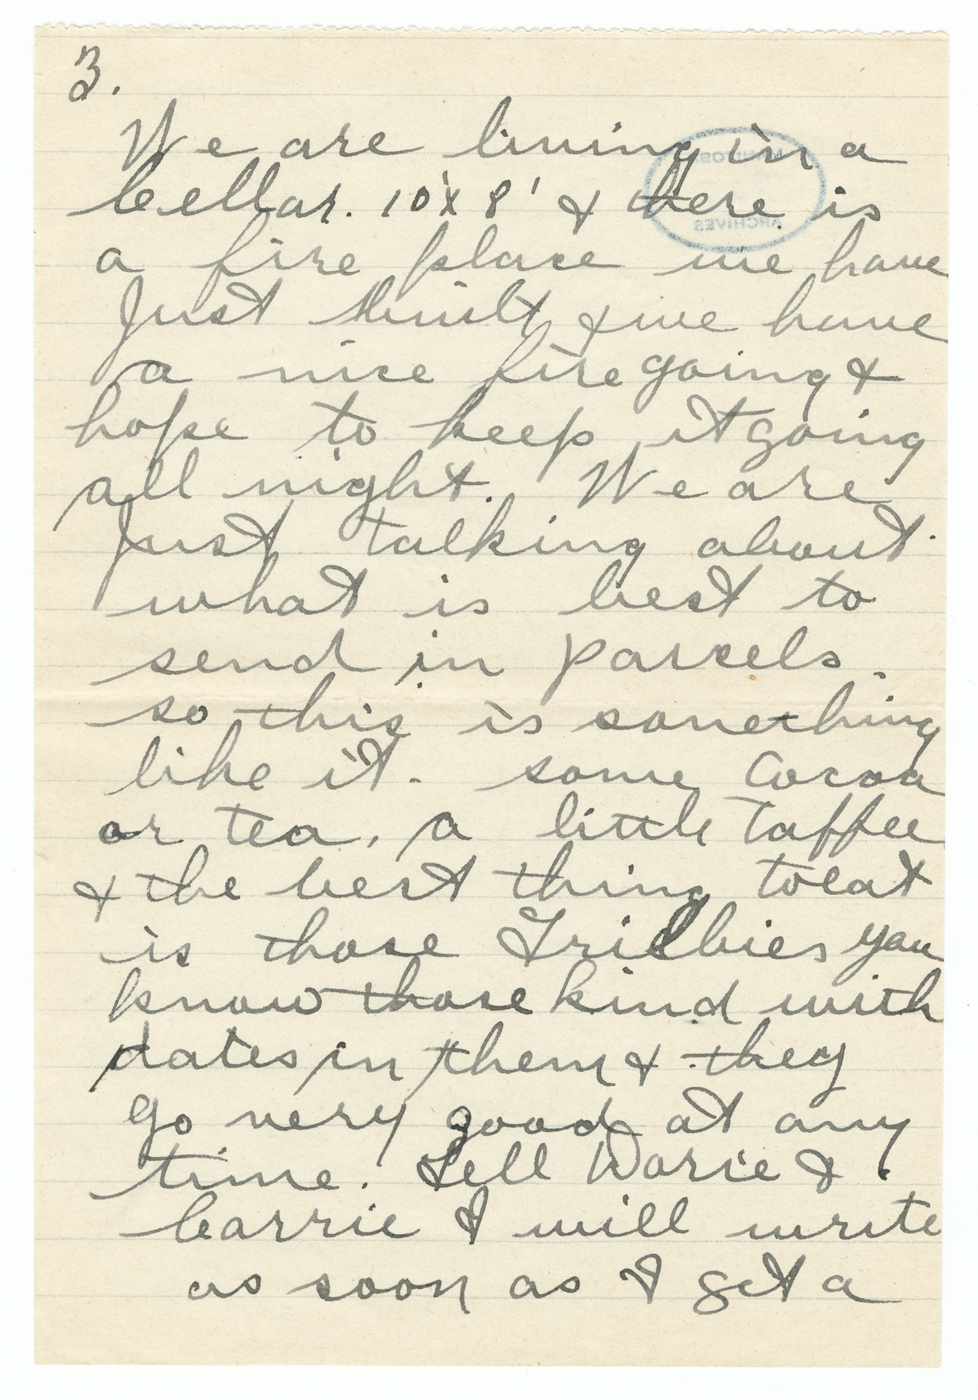 3.
We are living in a
Cellar. 10'x 8' & there is
a fire place we have
Just built & we have
a nice fire going &
hope to keep it going
all night. We are
Just talking about
what is best to
send in parcels.
so this is sonething
like it. some Cocoa
or tea, a little Taffee
& the best thing to eat
is those you
know those kind with
dates in them & they
go very good at any
time. Tell Dorie &
Carrie I will write
as soon as I get a
ARCHIVES